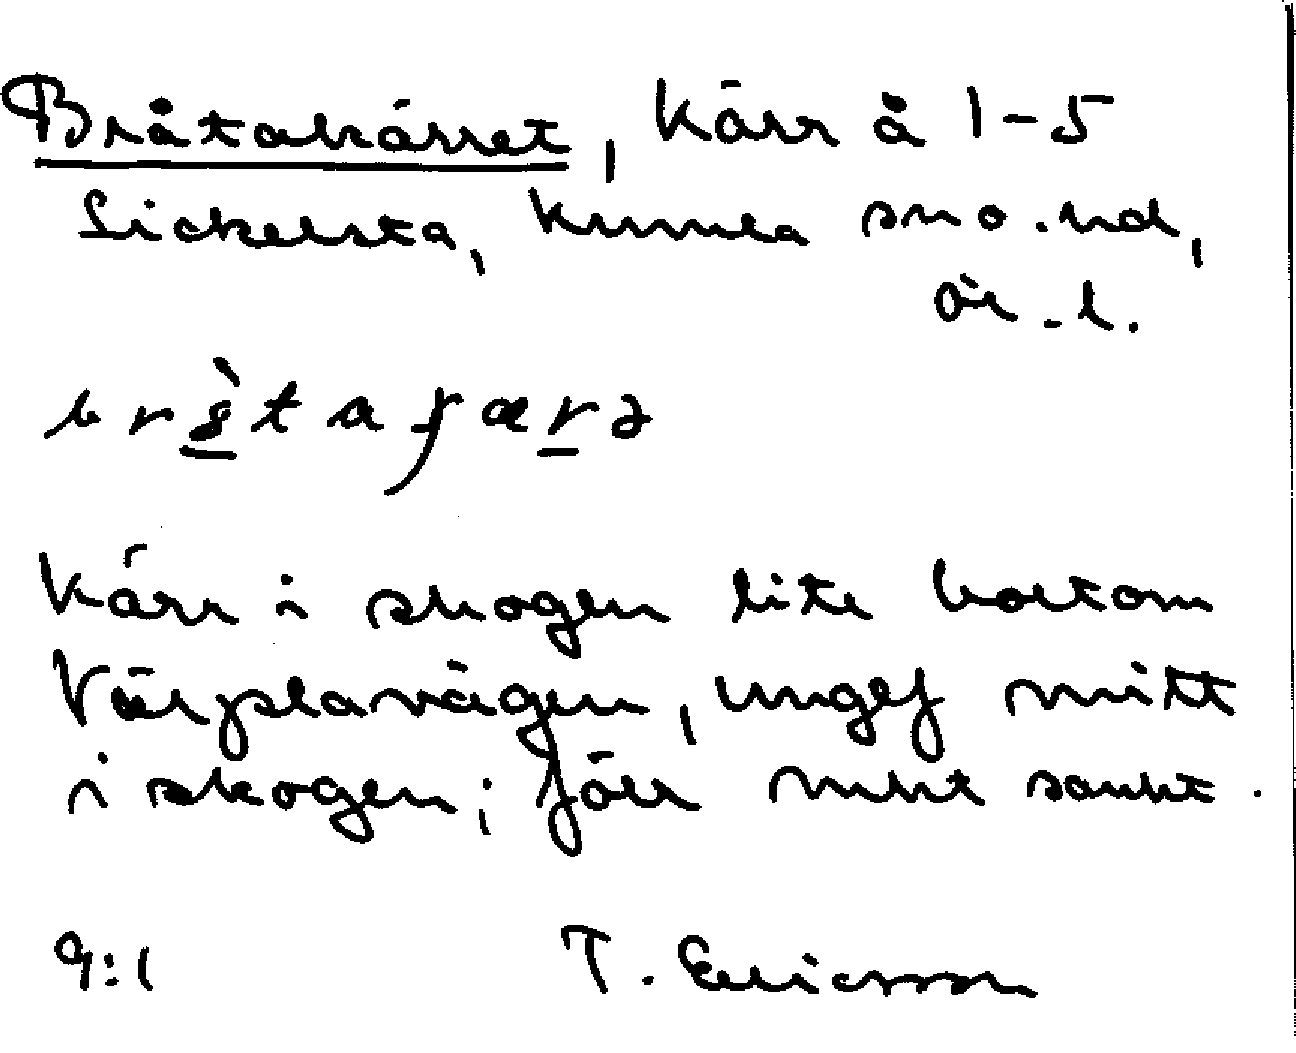 Bråtakärret, Kärr å 1-5
Sickelsta, Kumla sno.hd,
Ör.l.
Kärr i skogen lite bortom
Värplavägen, ungef mitt
i skogen; förr mkt sankt.
9:1 T. Ericsson